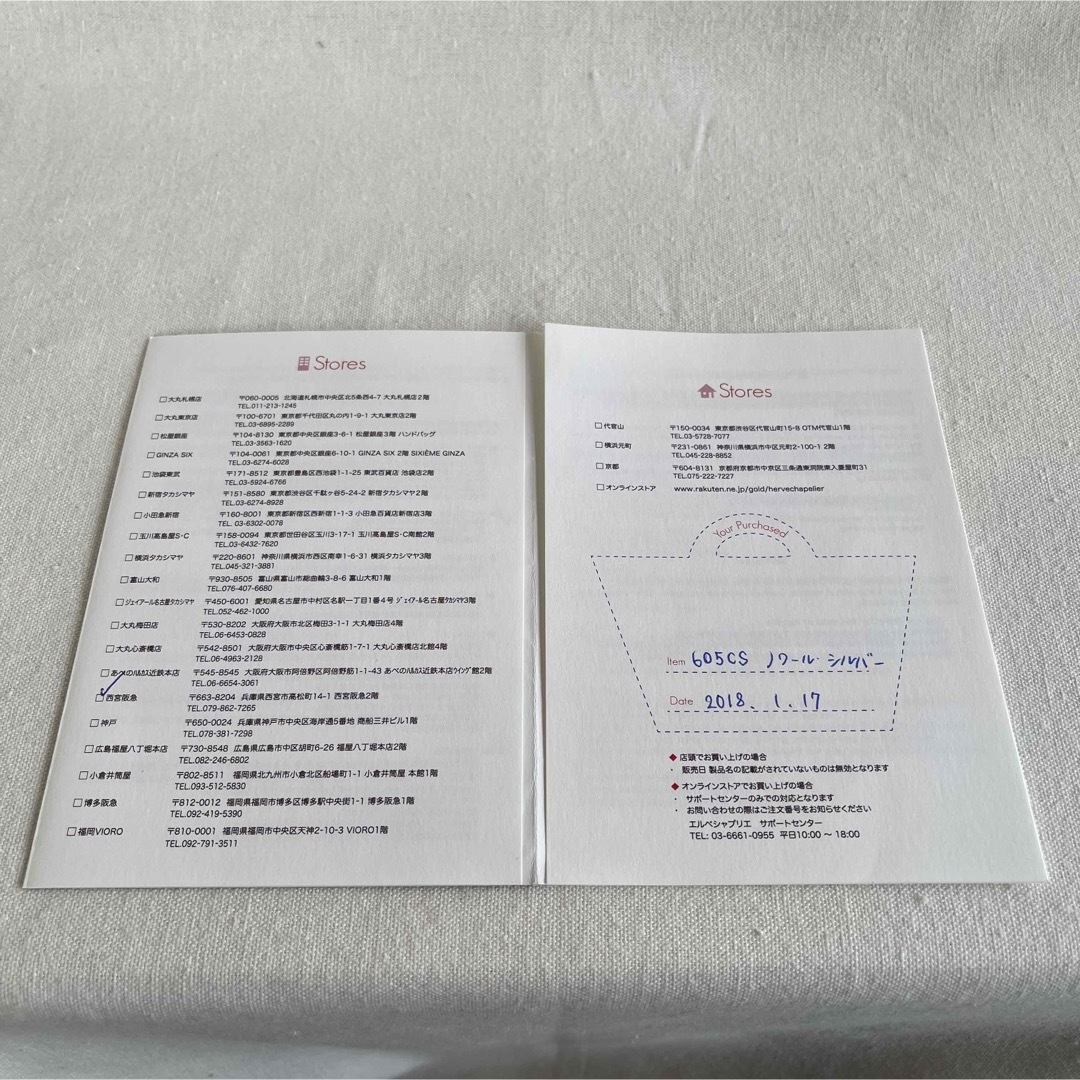 Stores
□大丸札幌店 〒060-0005 北海道札幌市中央区北5条西4-7 大丸札幌店2階
TEL.011-213-1245
□大丸東京店 〒100-6701 東京都千代田区丸の内1-9-1 大丸東京店2階
TEL.03-6895-2289
□松屋銀座 〒104-8130 東京都中央区銀座3-6-1 松屋銀座3階 ハンドバッグ
TEL.03-3563-1620
□GINZA SIX 〒104-0061 東京都中央区銀座6-10-1 GINZA SIX 2階 SIXIÈME GINZA
TEL.03-6274-6028
□池袋東武 〒171-8512 東京都豊島区西池袋1-1-25 東武百貨店 池袋店2階
TEL.03-5924-6766
□新宿タカシマヤ 〒151-8580 東京都渋谷区千駄ヶ谷5-24-2 新宿タカシマヤ2階
TEL.03-6274-8928
□小田急新宿 〒160-8001 東京都新宿区西新宿1-1-3 小田急百貨店新宿店3階
TEL. 03-6302-0078
□玉川髙島屋S・C 〒158-0094 東京都世田谷区玉川3-17-1 玉川髙島屋S・C南館2階
TEL.03-6432-7620
□横浜タカシマヤ 〒220-8601 神奈川県横浜市西区南幸1-6-31 横浜タカシマヤ3階
TEL.045-321-3881
□富山大和 〒930-8505 富山県富山市総曲輪3-8-6 富山大和1階
TEL.076-407-6680
□ジェイアール名古屋タカシマヤ 〒450-6001 愛知県名古屋市中村区名駅一丁目1番4号 ジェイアール名古屋タカシマヤ3階
TEL.052-462-1000
□大丸梅田店 〒530-8202 大阪府大阪市北区梅田3-1-1 大丸梅田店4階
TEL.06-6453-0828
□大丸心斎橋店 〒542-8501 大阪府大阪市中央区心斎橋筋1-7-1 大丸心斎橋店北館4階
TEL.06-4963-2128
□あべのハルカス近鉄本店 〒545-8545 大阪府大阪市阿倍野区阿倍野筋1-1-43 あべのハルカス近鉄本店ウイング館2階
TEL.06-6654-3061
□西宮阪急 〒663-8204 兵庫県西宮市高松町14-1 西宮阪急2階
TEL.079-862-7265
□神戸 〒650-0024 兵庫県神戸市中央区海岸通5番地 商船三井ビル1階
TEL.078-381-7298
□広島福屋八丁堀本店 〒730-8548 広島県広島市中区胡町6-26 福屋八丁堀本店2階
TEL.082-246-6802
□小倉井筒屋 〒802-8511 福岡県北九州市小倉北区船場町1-1 小倉井筒屋 本館1階
TEL.093-512-5830
□博多阪急 〒812-0012 福岡県福岡市博多区博多駅中央街1-1 博多阪急1階
TEL.092-419-5390
□福岡VIORO 〒810-0001 福岡県福岡市中央区天神2-10-3 VIORO1階
TEL.092-791-3511
Stores
□代官山 〒150-0034 東京都渋谷区代官山町15-8 OTM代官山1階
TEL.03-5728-7077
□横浜元町 〒231-0861 神奈川県横浜市中区元町2-100-1 2階
TEL.045-228-8852
□京都 〒604-8131 京都府京都市中京区三条通東洞院東入菱屋町31
TEL.075-222-7227
□オンラインストア www.rakuten.ne.jp/gold/hervechapelier
Your Purchased
Item 605CS ノワール・シルバー
Date 2018.1.17
◆店頭でお買い上げの場合
・ 販売日 製品名の記載がされていないものは無効となります
◆オンラインストアでお買い上げの場合
・ サポートセンターのみでの対応となります
・ お問い合わせの際はご注文番号をお知らせください
エルベシャプリエ サポートセンター
TEL: 03-6661-0955 平日10:00 ~ 18:00